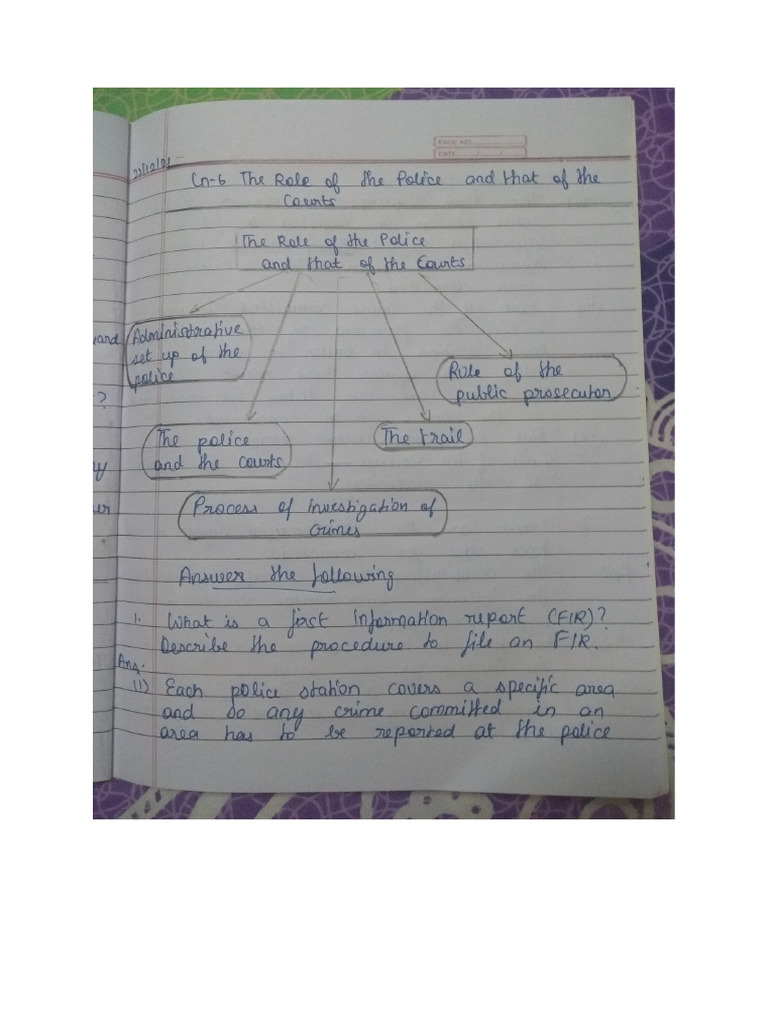 23/12/21
PAGE NO.
DATE
Cn-6 The Role of the Police and that of the
Courts
The Role of the Police
and that of the Courts
Administrative
set up of the
police
Role of the
public prosecutor
The police
and the courts
The trail
Process of investigation of
crimes
Answer the following
1. What is a first information report (FIR)?
Describe the procedure to file an FIR.
Ans.
(1) Each police station covers a specific area
and so any crime committed in an
area has to be reported at the police